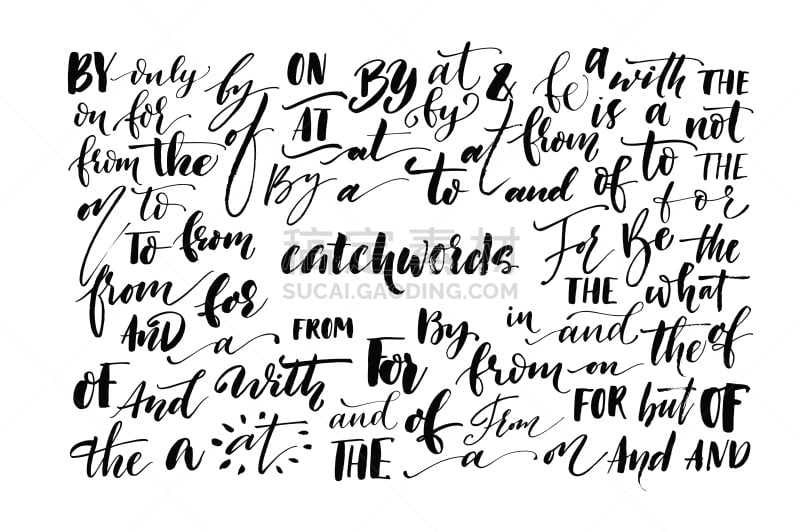 BY only by ON By at & be a with THE
on for of AT by from is a not
from the at a at of to THE
on to By a to and for
To from catchwords For Be the
稿定素材
SUCAI.GAODING.COM
from for THE what
AND a FROM By in and the of
OF And With For from on
the a at and of From FOR but OF
THE a on And AND